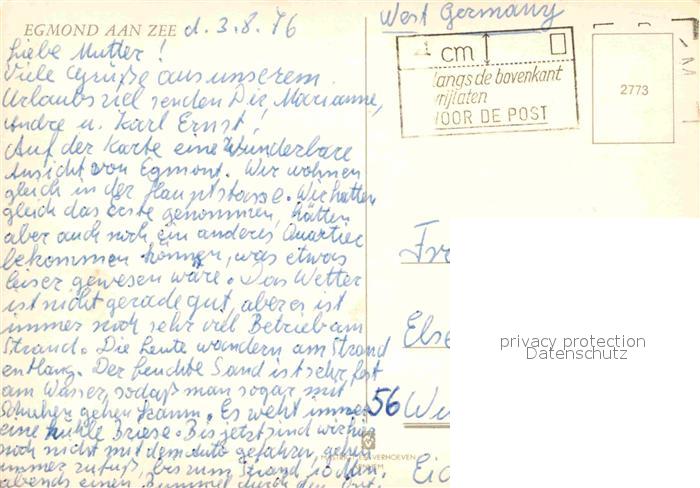 EGMOND AAN ZEE d. 3.8.76
West Germany
Liebe Mutter!
Viele Grüße aus unserem
Urlaubsziel senden Dir Marianne,
Andre u. Karl Ernst!
Auf der Karte eine Wunderbare
Ansicht von Egmont. Wir wohnen
gleich in der Hauptstasse. Wir hatten
gleich das erste genommen, hätten
aber auch noch ein anderes Quartier
bekommen können, was etwas
leiser gewesen wäre. Das Wetter
ist nicht gerade gut, aber es ist
immer noch sehr viel Betrieb am
Strand. Die Leute wandern am Strand
entlang. Der feuchte Sand ist sehr fest
am Wasser, sodaß man sogar mit
Schuhen gehen kann. Es weht immer
eine kühle Briese. Bis jetzt sind wir hier
noch nicht mit dem Auto gefahren, gehen
immer zufuß, bis zum Strand 10 Min.
abends einen Bummel durch den Ort.
4 cm
langs de bovenkant
vrijlaten
VOOR DE POST
2773
Fr
Else
56 Wu
Eic
VERHOEVEN
privacy protection
Datenschutz